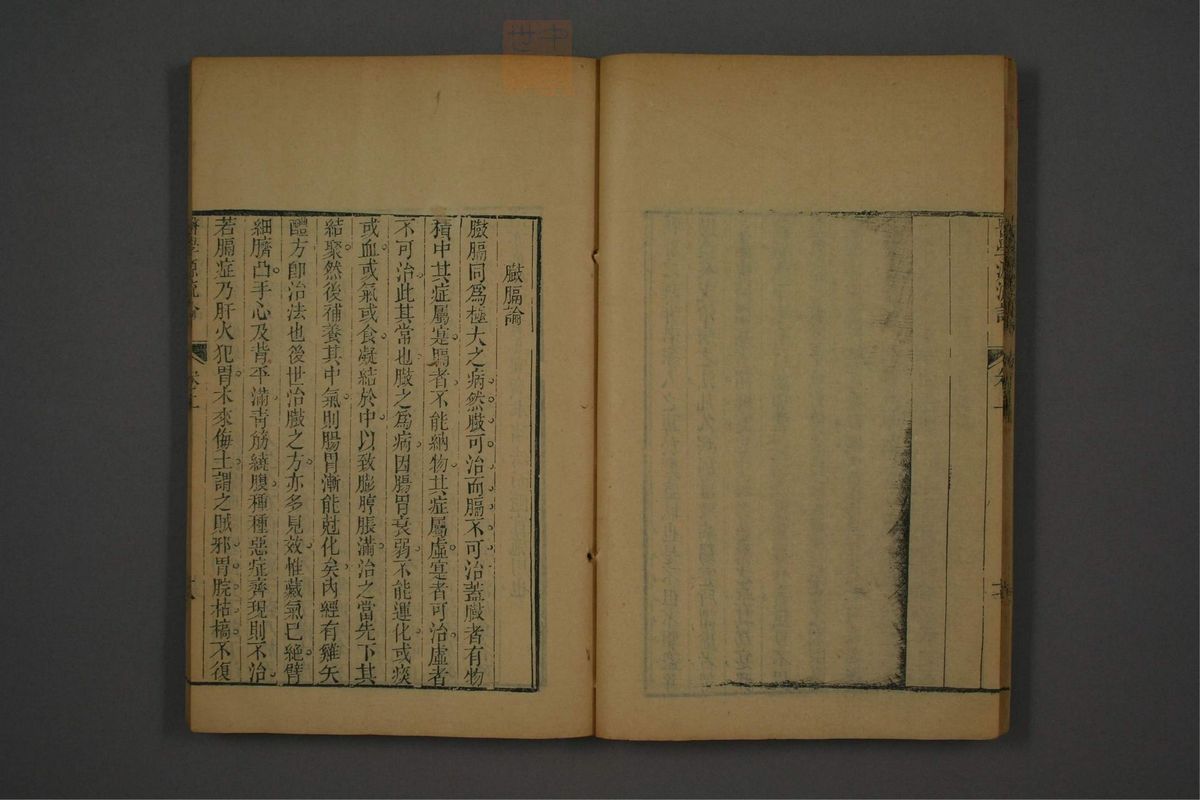 臌膈論
臌膈同為極大之病然臌可治而膈不可治蓋臌者有物
積中其症屬寔膈者不能納物其症屬虛寔者可治虛者
不可治此其常也臌之為病因腸胃衰弱不能運化或痰
或血或氣或食凝結於中以致膨脝脹滿治之當先下其
結聚然後補養其中氣則腸胃漸能尅化矣內經有雞矢
醴方即治法也後世治臌之方亦多見效惟藏氣已絕臂
細臍凸手心及背平滿青筋繞腹種種惡症齊現則不治
若膈症乃肝火犯胃木來侮土謂之賊邪胃脘枯槁不復